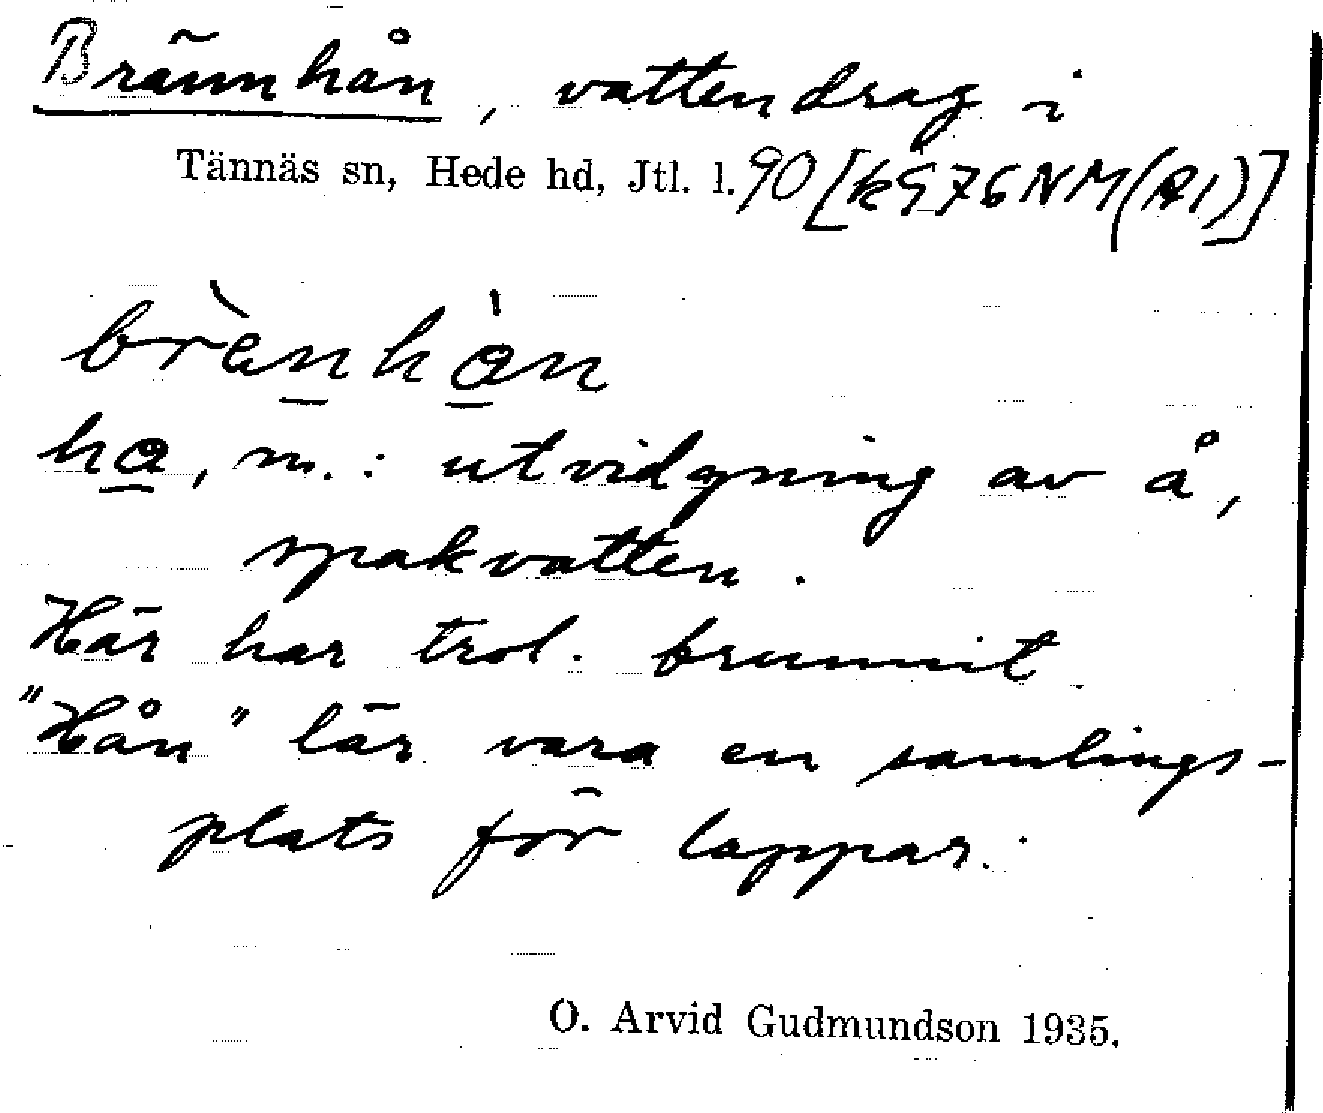 Brännhån, vattendrag i
Tännäs sn, Hede hd, Jtl. l. 90 [k976NM(A1)]
brànhàn
ha, m.: utvidgning av å,
spakvatten.
Här har trol. brunnit.
"Hån" lär vara en samlings-
plats för lappar.
O. Arvid Gudmundson 1935.